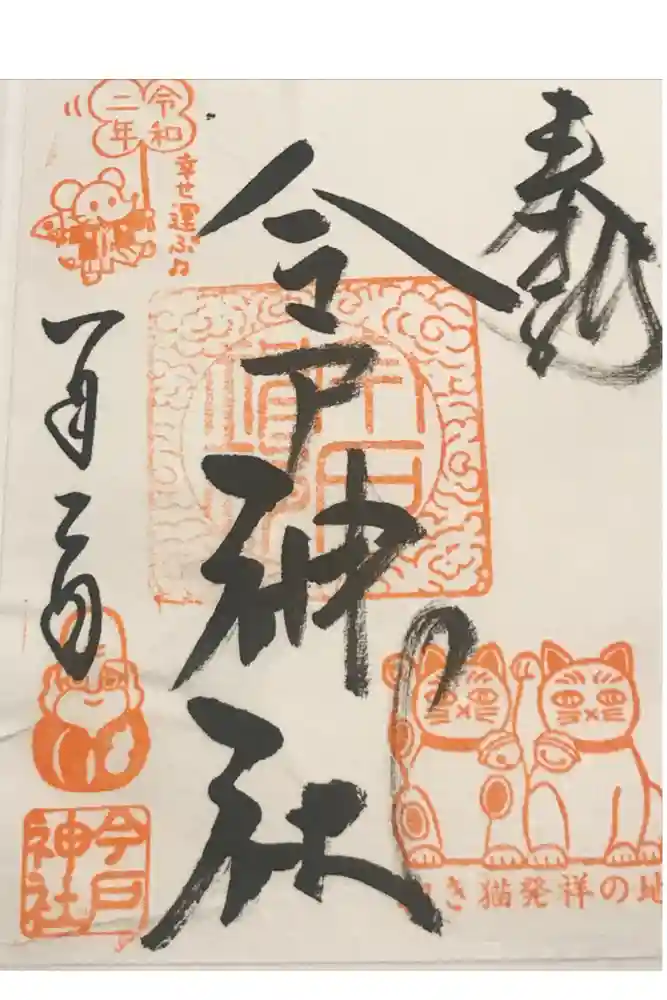 奉拝
今戸神社
招き猫発祥の地
令和
二年
幸せ運ぶ♫
一月二日
今戸
神社